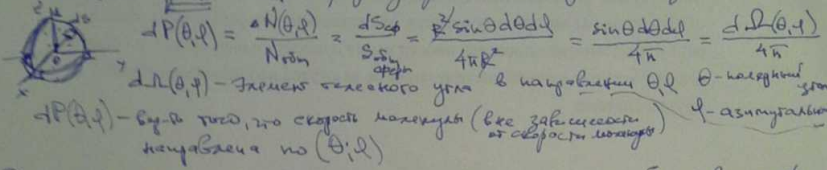 dP(θ,φ) = ΔN(θ,φ)/Nобщ = dSсф/Sобщ сферы = R²sinθdθdφ/4πR² = sinθdθdφ/4π = dΩ(θ,φ)/4π
dΩ(θ,φ) – элемент телесного угла в направлении θ,φ θ-полярный угол
dP(θ,φ) – вер-ть того, что скорость молекулы (вне зависимости от скорости молекулы) φ-азимутальн
направлена по (θ;φ)